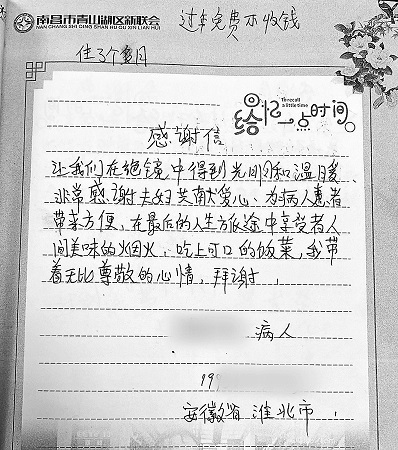 南昌市青山湖区新联会
NAN CHANG SHI QING SHAN HU QU XIN LIAN HUI
过年免费不收钱
住个月
To recall
a little time
给忆一点时间。
感谢信
让我们在绝镜中得到光间和温暖、
非常感谢夫妇共献爱心、为病人患者
带来方便，在最后的人生旅途中享受者人
间美味的烟火，吃上可口的饭菜，我带
着无比尊敬的心情，拜谢，
病人
安徽省 淮北市，